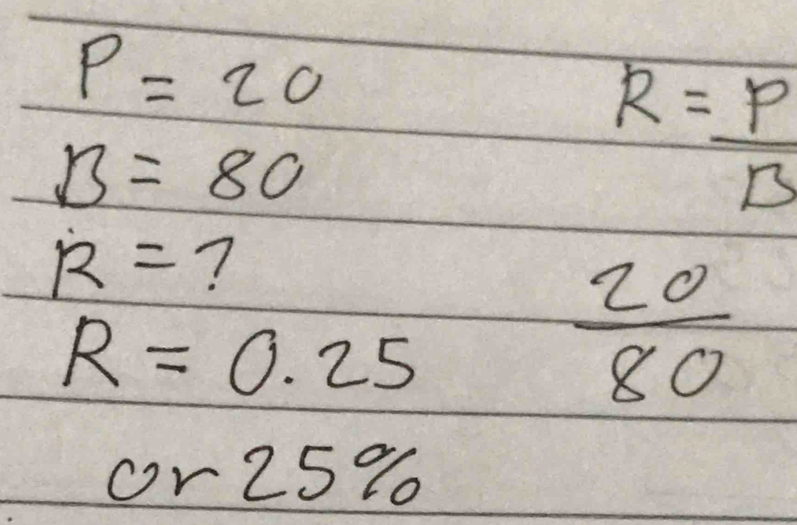 P = 20
R = P
B
B = 80
R = ?
20
80
R = 0.25
or 25%